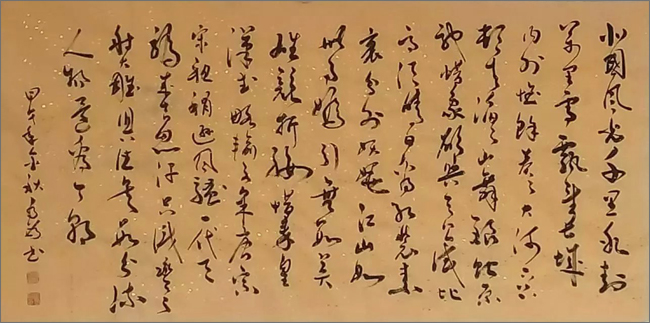 北國風光千里冰封
萬里雪飄望長城
內外惟餘莽莽大河上下
頓失滔滔山舞銀蛇原
馳蠟象欲與天公試比
高須晴日看紅裝素
裹分外妖嬈江山如
此多嬌引無數英
雄競折腰惜秦皇
漢武略輸文采唐宗
宋祖稍遜風騷一代天
驕成吉思汗只識彎弓
射大雕俱往矣數風流
人物還看今朝
甲午年金秋書